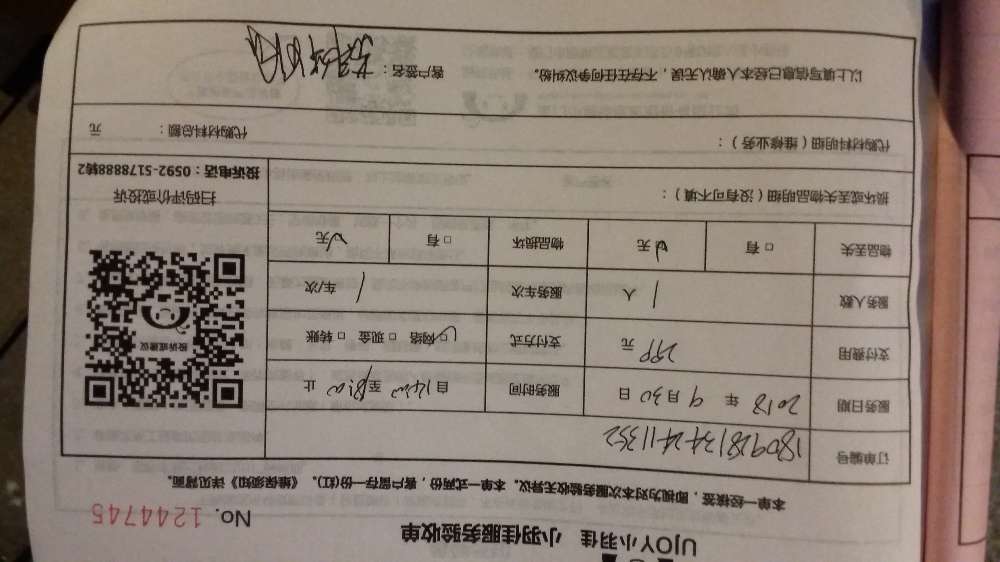 UJOY小羽佳 小羽佳服务验收单
No. 1244745
本单一经核签，即视为对本次服务验收无异议。本单一式两份，客户留存一份(红)。《维保须知》详见背面。
订单编号 1809281342411352
服务日期 2018 年 9 月 30 日 服务时间 自 14:00 至 18:00 止
支付费用 299 元 支付方式 网络 □ 现金 □ 转账
服务人数 1 人 服务车次 1 车/次
物品丢失 □ 有 无 物品损坏 □ 有 无
投诉或建议
损坏或丢失物品明细（没有可不填）：
扫码评价或投诉
投诉电话：0592-5178888转2
代购材料明细（维修业务）： 代购材料总额： 元
以上填写信息已经本人确认无误，不存在任何争议纠纷。 客户签名：